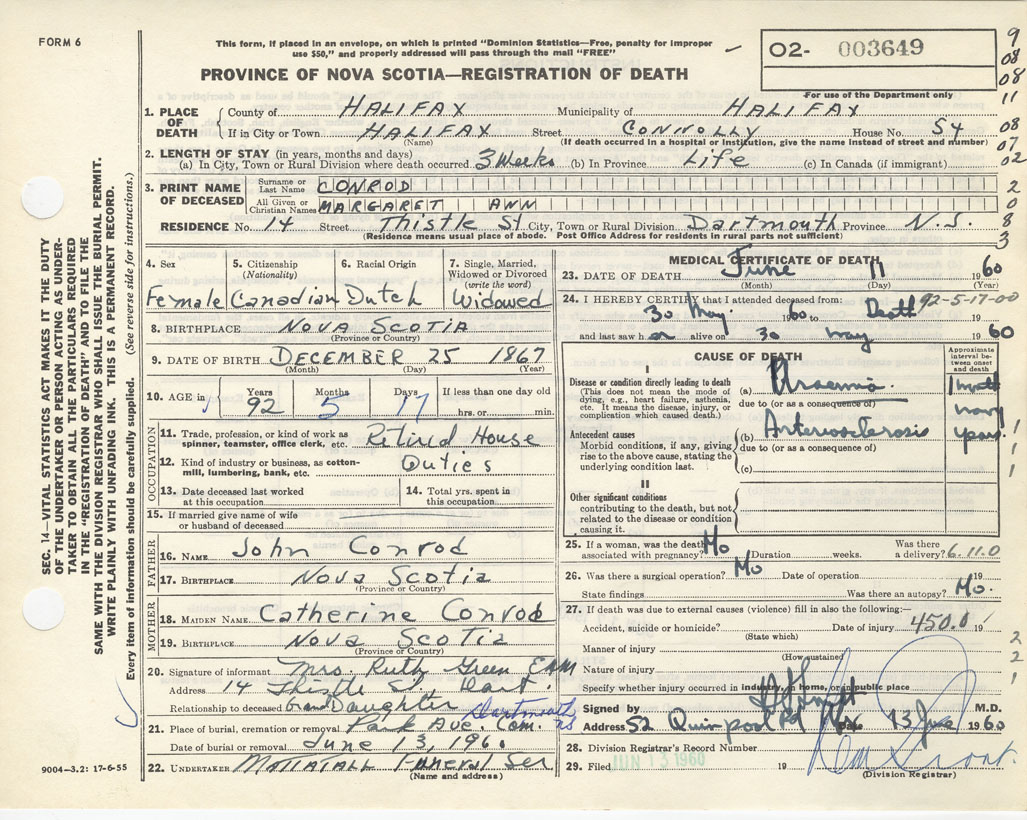 FORM 6
This form, if placed in an envelope, on which is printed "Dominion Statistics—Free, penalty for improper
use $50," and properly addressed will pass through the mail "FREE"
O2- 003649
For use of the Department only
PROVINCE OF NOVA SCOTIA—REGISTRATION OF DEATH
9
08
08
11
08
07
02
2
0
8
3
1. PLACE OF DEATH
County of HALIFAX Municipality of HALIFAX
If in City or Town HALIFAX Street CONNOLLY House No. 54
(Name) (If death occurred in a hospital or institution, give the name instead of street and number)
2. LENGTH OF STAY (in years, months and days)
(a) In City, Town or Rural Division where death occurred 3 Weeks (b) In Province Life (c) In Canada (if immigrant)
3. PRINT NAME OF DECEASED
Surname or Last Name CONROD
All Given or Christian Names MARGARET ANN
RESIDENCE No. 14 Street Thistle St City, Town or Rural Division Dartmouth Province N.S.
(Residence means usual place of abode. Post Office Address for residents in rural parts not sufficient)
4. Sex 5. Citizenship (Nationality) 6. Racial Origin 7. Single, Married, Widowed or Divorced (write the word)
Female Canadian Dutch Widowed
8. BIRTHPLACE NOVA SCOTIA
(Province or Country)
9. DATE OF BIRTH DECEMBER 25 1867
(Month) (Day) (Year)
10. AGE in Years 92 Months 5 Days 17 If less than one day old
hrs. or min.
OCCUPATION
11. Trade, profession, or kind of work as spinner, teamster, office clerk, etc. Retired House
12. Kind of industry or business, as cotton-mill, lumbering, bank, etc. Duties
13. Date deceased last worked at this occupation
14. Total yrs. spent in this occupation
15. If married give name of wife or husband of deceased
FATHER
16. NAME John Conrod
17. BIRTHPLACE Nova Scotia
(Province or Country)
MOTHER
18. MAIDEN NAME Catherine Conrod
19. BIRTHPLACE Nova Scotia
(Province or Country)
20. Signature of informant Mrs. Ruth Green
Address 14 Thistle St. Dart.
Relationship to deceased Grand Daughter
21. Place of burial, cremation or removal Park Ave Cem. Dartmouth
Date of burial or removal June 13, 1960
22. UNDERTAKER MATTATALL Funeral Ser
(Name and address)
MEDICAL CERTIFICATE OF DEATH
23. DATE OF DEATH June 11 1960
(Month) (Day) (Year)
24. I HEREBY CERTIFY that I attended deceased from: 92-5-17-00
30 May 1960 to Death
and last saw h er alive on 30 may 1960
CAUSE OF DEATH
Approximate interval between onset and death
I
Disease or condition directly leading to death
(This does not mean the mode of dying; e.g., heart failure, asthenia, etc. It means the disease, injury, or complication which caused death.)
(a) Uraemia 1 month
due to (or as a consequence of)
Antecedent causes
Morbid conditions, if any, giving rise to the above cause, stating the underlying condition last.
(b) Arteriosclerosis many years.
due to (or as a consequence of)
(c)
1
1
1
II
Other significant conditions
contributing to the death, but not related to the disease or condition causing it.
25. If a woman, was the death associated with pregnancy? No Duration weeks. Was there a delivery? 6-11.0
26. Was there a surgical operation? No Date of operation 19
State findings Was there an autopsy? No.
27. If death was due to external causes (violence) fill in also the following:—
Accident, suicide or homicide? Date of injury 450.0 19
(State which)
Manner of injury
(How sustained)
Nature of injury
Specify whether injury occurred in industry, in home, or in public place
2
2
1
Signed by M.D.
Address 52 Quinpool Rd Date 13 June 1960
28. Division Registrar's Record Number
29. Filed JUN 13 1960 19
(Division Registrar)
SEC. 14—VITAL STATISTICS ACT MAKES IT THE DUTY
OF THE UNDERTAKER OR PERSON ACTING AS UNDER-
TAKER TO OBTAIN ALL THE PARTICULARS REQUIRED
IN THE "REGISTRATION OF DEATH" AND TO FILE THE
SAME WITH THE DIVISION REGISTRAR WHO SHALL ISSUE THE BURIAL PERMIT.
WRITE PLAINLY WITH UNFADING INK. THIS IS A PERMANENT RECORD.
Every item of information should be carefully supplied. (See reverse side for instructions.)
9004—3.2: 17-6-55